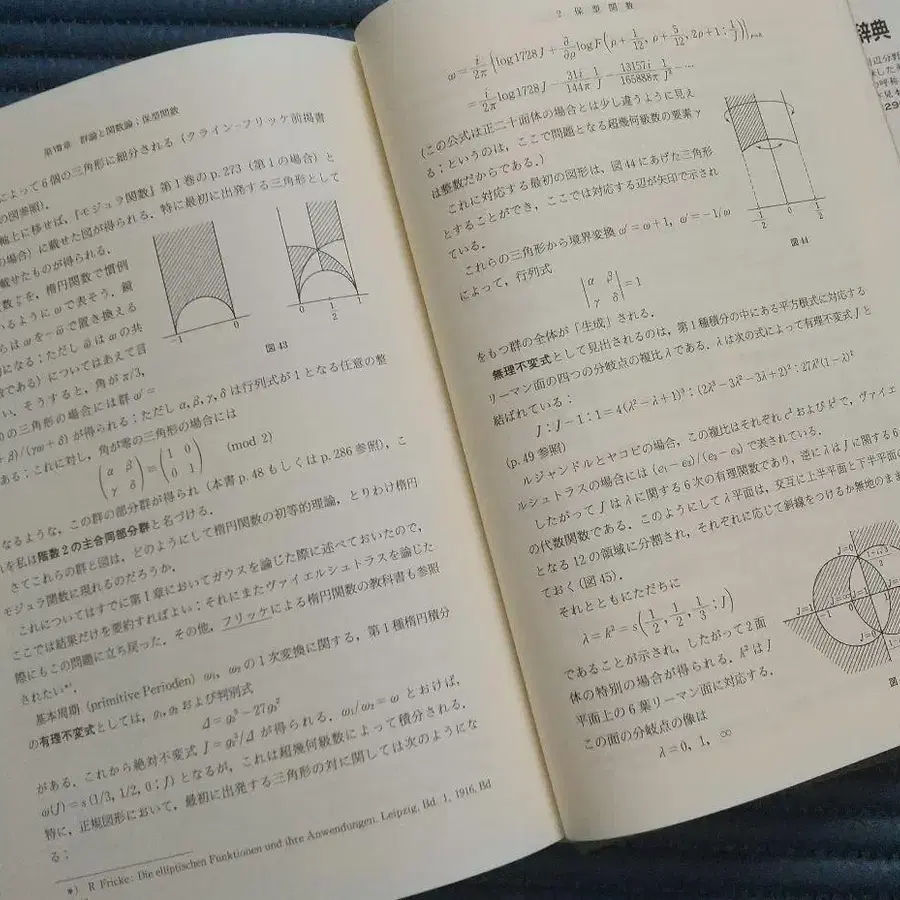 第VIII章 群論と関数論；保型関数
によって6個の三角形に細分される（クライン-フリッケ前掲書
の図参照）.
軸上に移せば，『モジュラ関数』第1巻の p. 273（第1の場合）と
の場合）に載せた図が得られる．特に最初に出発する三角形として
載せたものが得られる．
数ζを，楕円関数で慣例
いるようにωで表そう．鏡
らはωを−ω̄で置き換える
になる；ただしω̄はωの共
である）についてはあえて言
い，そうすると，角がπ/3,
0の三角形の場合には群ω′=
+β)/(γω+δ) が得られる；ただし α, β, γ, δ は行列式が1となる任意の整
ある；これに対し，角が零の三角形の場合には
−1 0
0 1/2 1
図43
(α β
γ δ) ≡ (1 0
0 1) (mod 2)
なるような，この群の部分群が得られ（本書 p. 48 もしくは p. 286 参照），こ
れを私は階数2の主合同部分群と名づける．
さてこれらの群と図は，どのようにして楕円関数の初等的理論，とりわけ楕円
モジュラ関数に現れるのだろうか．
これについてはすでに第1章においてガウスを論じた際に述べておいたので，
ここでは結果だけを要約すればよい；それにまたヴァイエルシュトラスを論じた
際にもこの問題に立ち戻った．その他，フリッケによる楕円関数の教科書も参照
されたい*⁾．
基本周期（primitive Perioden）ω₁, ω₂ の1次変換に関する，第1種楕円積分
の有理不変式としては，g₂, g₃ および判別式
Δ=g₂³−27g₃²
がある．これから絶対不変式 J=g₂³/Δ が得られる．ω₁/ω₂=ω とおけば，
ω(J)=s(1/3, 1/2, 0 ; J) となるが，これは超幾何級数によって積分される．
特に，正規図形において，最初に出発する三角形の対に関しては次のようにな
る；
*） R Fricke: Die elliptischen Funktionen und ihre Anwendungen. Leipzig, Bd. 1, 1916, Bd
2. 保型関数
ω=i/2π {log1728J+∂/∂ρ logF(ρ+1/12, ρ+5/12, 2ρ+1 ; 1/J)}|ρ=0
=i/2π log1728J−31i/144π 1/J−13157i/165888π 1/J²−…
（この公式は正二十面体の場合とは少し違うように見え
る；というのは，ここで問題となる超幾何級数の要素γ
は整数だからである．）
これに対応する最初の図形は，図44にあげた三角形
とすることができ，ここでは対応する辺が矢印で示され
ている．
−1/2 0 1/2
図44
これらの三角形から境界変換 ω′=ω+1, ω′=−1/ω
によって，行列式
|α β
γ δ|=1
をもつ群の全体が「生成」される．
無理不変式として見出されるのは，第1種積分の中にある平方根式に対応する
リーマン面の四つの分岐点の複比λである．λは次の式によって有理不変式Jと
結ばれている：
J : J−1 : 1=4(λ²−λ+1)³ : (2λ³−3λ²−3λ+2)² : 27λ²(1−λ)²
（p. 49 参照）
ルジャンドルとヤコビの場合，この複比はそれぞれ c² および k² で，ヴァイエ
ルシュトラスの場合には (e₁−e₃)/(e₂−e₃) で表されている．
したがって J はλに関する6次の有理関数であり，逆にλは J に関する6
の代数関数である．このようにしてλ平面は，交互に上半平面と下半平面の
となる12の領域に分割され，それぞれに応じて斜線をつけるか無地のまま
ておく（図45）．
それとともにただちに
λ=k²=s(1/2, 1/2, 1/3 ; J)
であることが示され，したがって2面
体の特別の場合が得られる．k² は J
平面上の6葉リーマン面に対応する．
この面の分岐点の像は
λ=0, 1, ∞
J=0
J=1
J=0
辞典